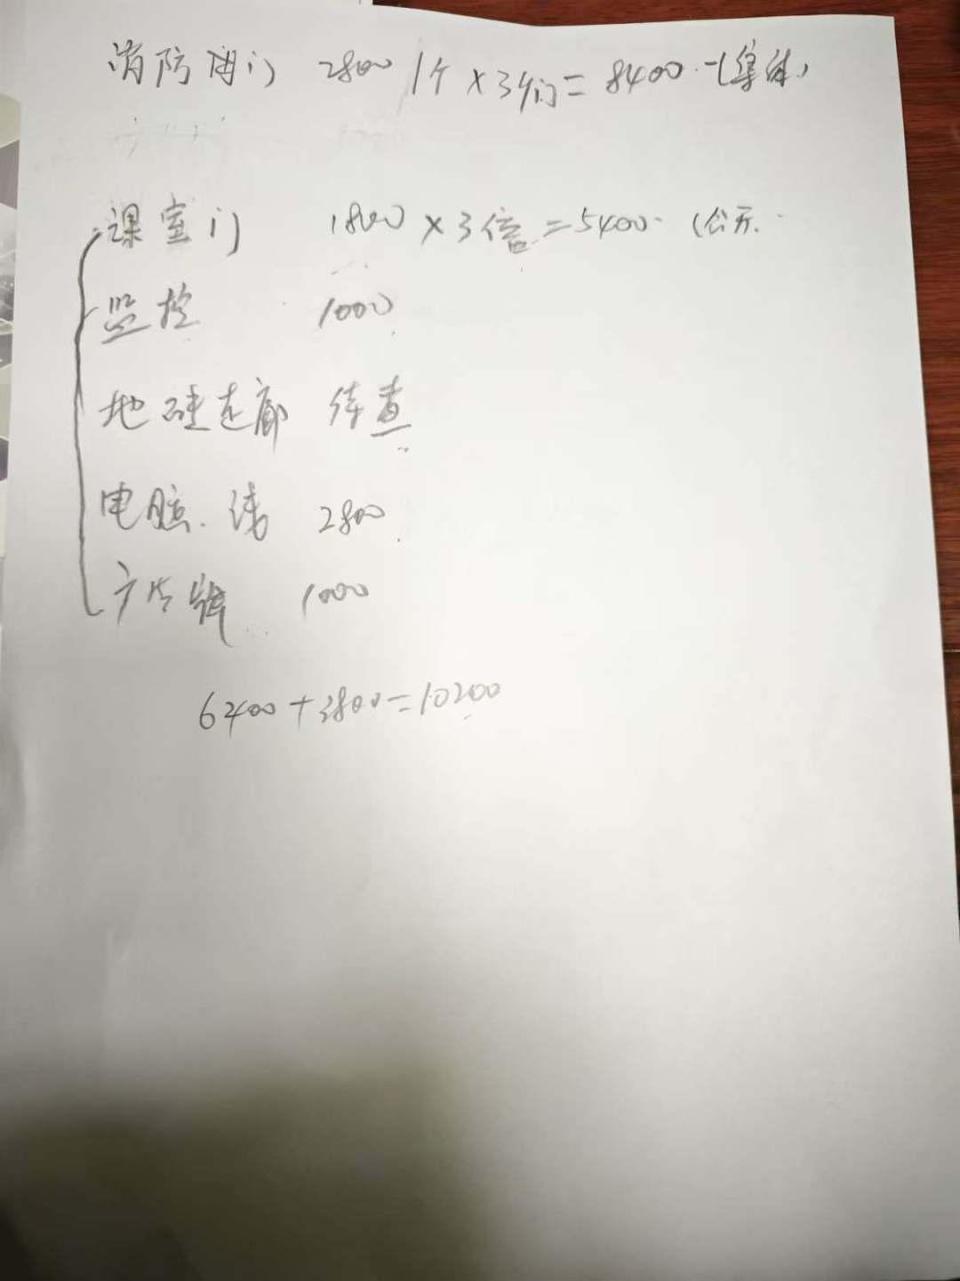 消防闸门 2800 1个 × 3个门 = 8400 (集体)
课室门 1800 × 3倍 = 5400 (公开
监控 1000
地砖走廊 待查
电脑、线 2800
广告牌 1000
6400 + 3800 = 10200